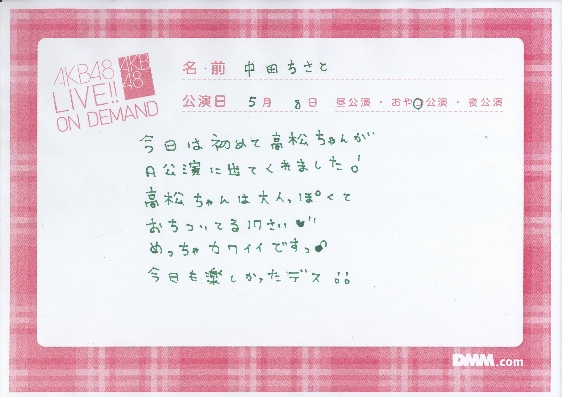 AKB48
LIVE!!
ON DEMAND
AKB
48
名・前 中田ちさと
公演日 5月 8日 昼公演・おや○公演・夜公演
今日は初めて高松ちゃんが
A公演に出てくれました!
高松ちゃんは大人っぽくて
おちついてる17さい
めっちゃカワイイですっ
今日も楽しかったデス
DMM.com